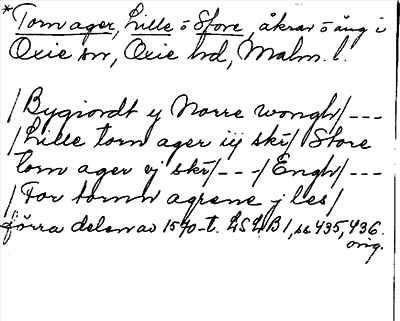 *Torn ager, Lille o Store, åkrar o äng i
Oxie sn, Oxie hd, Malm. l.
/Bygiordt y Norre wongh/---
/Lille torn ager iij skr/ Store
torn ager vj skr/---/Engh/---
/For tornn agrene j les/
förra delen av 1570-t. LSLB1, ss. 435, 436.
orig.